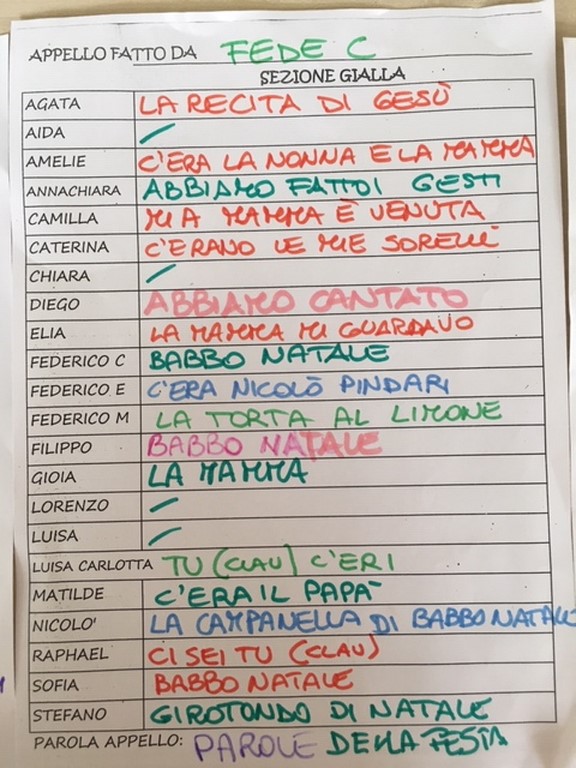 APPELLO FATTO DA FEDE C
SEZIONE GIALLA
AGATA LA RECITA DI GESÙ
AIDA /
AMELIE C'ERA LA NONNA E LA MAMMA
ANNACHIARA ABBIAMO FATTO I GESTI
CAMILLA MIA MAMMA È VENUTA
CATERINA C'ERANO LE MIE SORELLE
CHIARA /
DIEGO ABBIAMO CANTATO
ELIA LA MAMMA MI GUARDAVO
FEDERICO C BABBO NATALE
FEDERICO E C'ERA NICOLÒ PINDARI
FEDERICO M LA TORTA AL LIMONE
FILIPPO BABBO NATALE
GIOIA LA MAMMA
LORENZO /
LUISA /
LUISA CARLOTTA TU (CLAU) C'ERI
MATILDE C'ERA IL PAPÀ
NICOLO' LA CAMPANELLA DI BABBO NATALE
RAPHAEL CI SEI TU (CLAU)
SOFIA BABBO NATALE
STEFANO GIROTONDO DI NATALE
PAROLA APPELLO: PAROLE DELLA FESTA